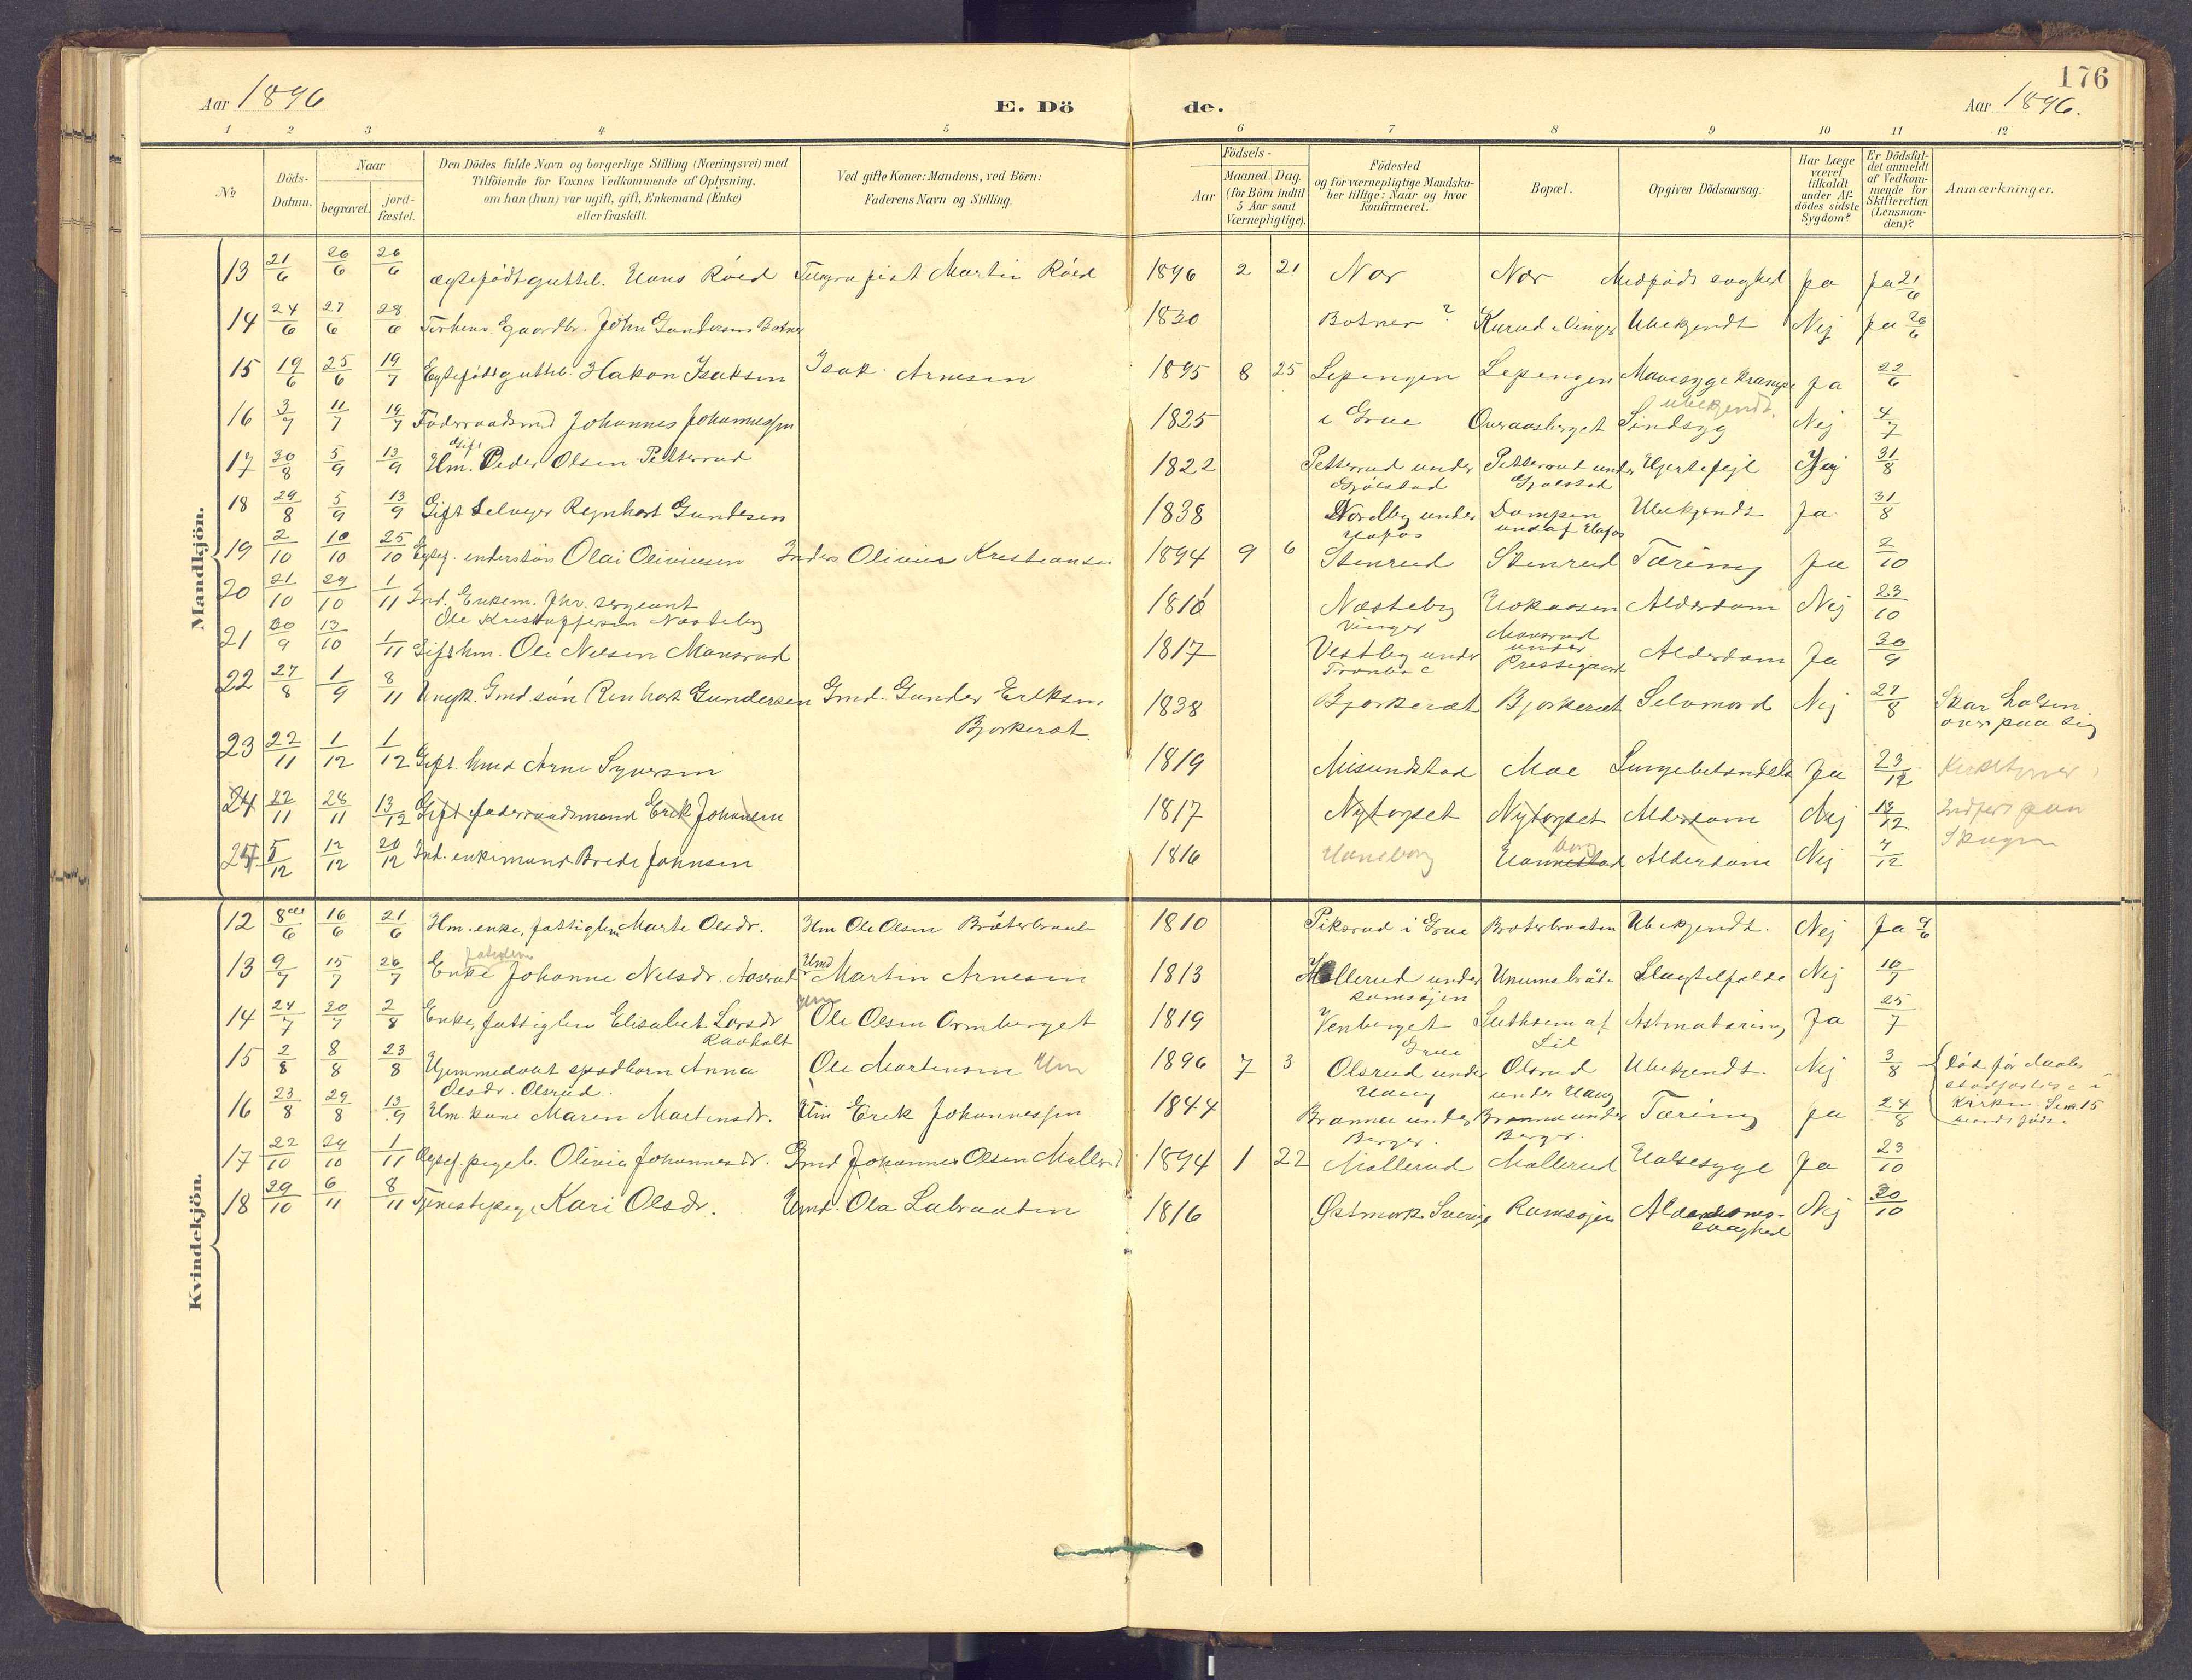 176
Aar 1896
E. Döde.
Aar 1896.
1 2 3 4 5 6 7 8 9 10 11 12
No
Döds-Datum.
Naar
begravet.
jordfæstet.
Den Dödes fulde Navn og borgerlige Stilling (Næringsvei) med
Tilföiende for Voxnes Vedkommende af Oplysning,
om han (hun) var ugift, gift, Enkemand (Enke)
eller fraskilt.
Ved gifte Koner: Mandens, ved Börn:
Faderens Navn og Stilling.
Födsels-
Aar
Maaned. Dag.
(for Börn indtil
5 Aar samt
Værnepligtige).
Födested
og for værnepligtige Mandskaber tillige: Naar og hvor
konfirmeret.
Bopæl.
Opgiven Dödsaarsag.
Har Læge
været
tilkaldt
under Afdödes sidste
Sygdom?
Er Dödsfaldet anmeldt
af Vedkommende for
Skifteretten
(Lensmanden)?
Anmærkninger.
Mandkjön.
13 21/6 26/6 26/6 ægtefødt gutteb. Hans Röed Telegrafist Martin Röed 1896 2 21 Nor Nor Medfødt svaghed ja ja 21/6
14 24/6 27/6 28/6 John Gundersen Botner 1830 Botner? Kurud Vinger Ubekjendt Nej ja 26/6
15 19/6 25/6 19/7 Egtefødt gutteb. Hakon Isaksen Isak Arnesen 1895 8 25 Lepengen Lepengen Mavesyge krampe Ja 22/6
16 3/7 11/7 19/7 Föderaadsmd Johannes Johannessen 1825 i Grue Overaasberget Sindsyg ubekjendt. Nej 4/7
17 30/8 5/9 13/9 Gift Hm. Peder Olsen Petterrud 1822 Petterrud under Gjølstad Petterrud under Gjølstad Hjertefejl Nej 31/8
18 29/8 5/9 13/9 Gift Selvejer Reynhart Gundesen 1838 Nordby under Hofos Dampen und af Hofos Ubekjendt Ja 31/8
19 2/10 10/10 25/10 Egtef. inderstsøn Olai Oliviusen Inders Olivius Kristiansen 1894 9 6 Stenrud Stenrud Tæring Ja 2/10
20 21/10 29/10 1/11 Ind. Enkem. fhv. sergeant
Ole Kristoffersen Næsteby 1816 Næsteby Vinger Hokaasen Alderdom Nej 23/10
21 30/9 13/10 1/11 Gift hm. Ole Nilsen Mansrud 1817 Vestby under Mansrud under Prestegaard Alderdom Ja 30/9
22 27/8 1/9 8/11 Ungk. Gmd.søn Renhart Gundersen Gmd. Gunder Eriksen
Bjorkeröt. 1838 Bjorkeröt Bjorkeröt Selvmord Nej 27/8 Skar halsen
over paa sig
23 22/11 1/12 1/12 Gift. hmd Arne Syversen 1819 Misundstad Moe Lungebetændels Ja 23/12
24 22/11 28/11 13/12 Gift føderaadsmand Erik Johansen 1817 Nytorpet Nytorpet Alderdom Nej 13/12 Indført paa
Skogen
25 5/12 12/12 20/12 Ind. enkemand Brede Johnsen 1816 Haneborg Hannestad borg Alderdom Nej 7/12
Kvindekjön.
12 8de/6 16/6 21/6 Hm. enke, fattiglem Marte Olsdr. Hm Ole Olsen Bråterbraaten 1810 Pikerud i Grue Braterbraaten Ubekjendt. Nej Ja 9/6
13 9/7 15/7 26/7 Enke fatiglem Johanne Nilsdr. Aaserud Hmd Martin Arnesen 1813 Møllerud under Rømsøjen Slagtilfælde Nej 10/7
14 24/7 30/7 2/8 Enke, fattiglem Elisabet Larsdr
Ravholt Ole Olsen Ormberget 1819 Venberget Grue Astmatæring Ja 25/7
15 2/8 8/8 23/8 Hjemmedøbt spædbarn Anna
Olsdr. Olsrud. Ole Martinsen Hm 1896 7 3 Olsrud under Haug Olsrud under Haug Ubekjendt. Nej 3/8 Död før daabs
stadfæstelse i
kirken
16 23/8 29/8 13/9 Hm. kone Maren Martinsdr. Hm Erik Johannessen 1844 Branna under Berger. Branna under Berger. Tæring ja 24/8
17 22/10 29/10 1/11 Ægtef. pigeb. Olivia Johannesdr. Gmd Johannes Olsen Møllerud 1894 1 22 Møllerud Møllerud Halsesyge Ja 23/10
18 29/10 6/11 8/11 Tjenestepige Kari Olsdr. Hmd. Ola Labraaten 1816 Østmark Sverige Rømsøjen Alderdoms-
svaghed Nej 30/10